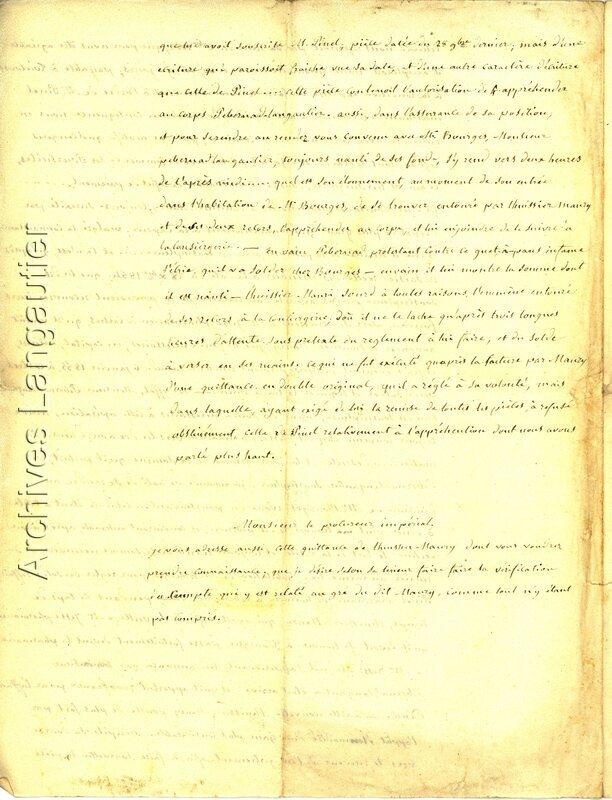 que lui avoit souscrite M. Pinel, pièce datée du 28 9bre dernier, mais d'une
écriture qui paroissoit fraîche, vue sa date, et d'une autre caractère d'écriture
que celle de Pinel — cette pièce contenoit l'autorisation de l'appréhender
au corps Pebernad-langautier. aussi, dans l'assurance de sa position,
et pour se rendre au rendez vous convenu avec Mr Bourges, Monsieur
pebernad langautier, toujours nanti de ses fonds, s'y rend vers deux heures
de l'après midi — quel est son étonnement, au moment de son entrée
dans l'habitation de Mr Bourges, de se trouver entouré par l'huissier Maury
et de ses deux recors, l'appréhender au corps, et lui enjoindre de le suivre à
la Consiergerie. — en vain Pebernad, protestant contre ce guet-à-pans infame
s'écrie, qu'il va solder chez Bourges — en vain il lui montre la somme dont
il est nanti — l'huissier Mauri, sourd à toutes raisons l'emmène entouré
de ses recors, à la conciergerie, d'où il ne le lache qu'après trois longues
heures d'attente, sous pretexte du règlement à lui faire, et du solde
à verser en ses mains. ce qui ne fut exécuté qu'après la facture par Maury
d'une quittance en double original, qu'il a réglé à sa volonté, mais
dans laquelle, ayant exigé de lui la remise de toutes les pièces, à refusé
obstinément, celle de Pinel relativement à l'appréhention dont nous avons
parlé plus haut.
Monsieur le procureur impérial.
je vous adresse aussi, cette quittance de l'huissier Maury dont vous voudrez
prendre connaissance, que je désire selon sa teneur faire faire la vérification
du Compte qui y est relaté au gré du dit Maury, comme tout n'y étant
pas compris.
Archives Langautier